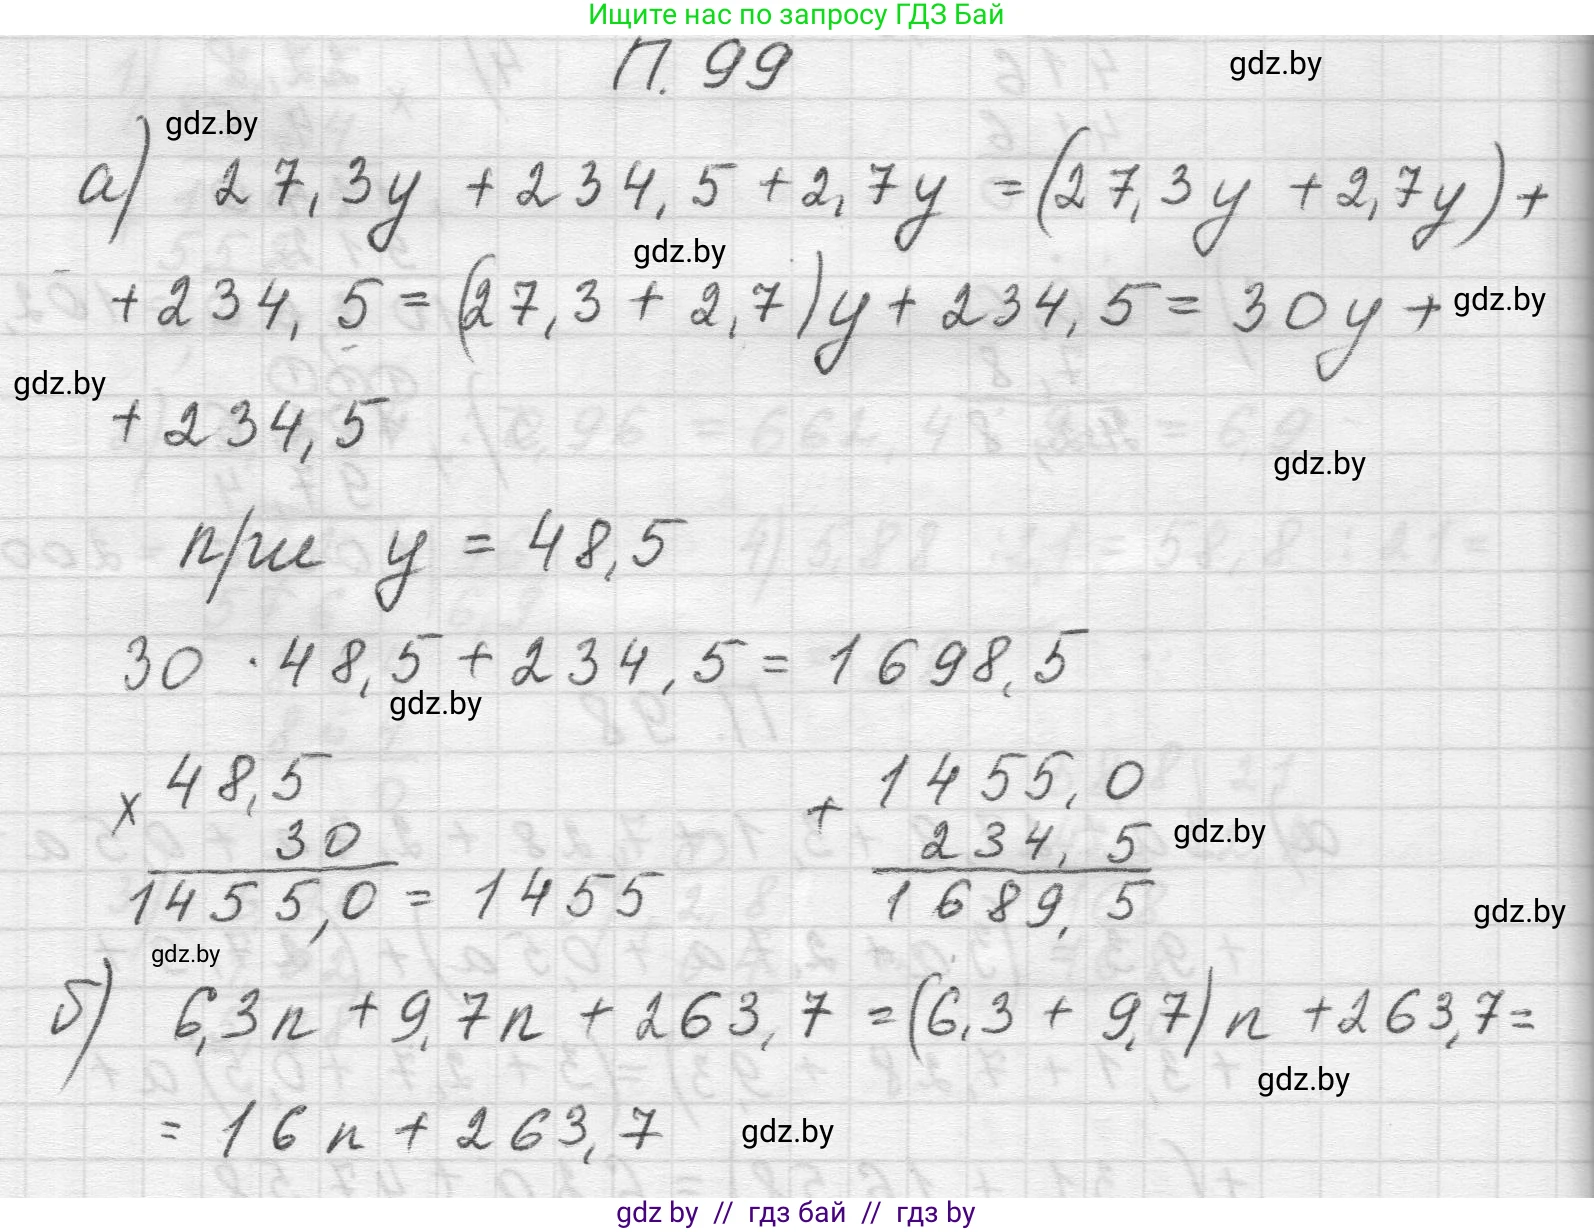 Ищите нас по запросу ГДЗ Бай
П. 99
gdz.by
gdz.by
а) 27,3y + 234,5 + 2,7y = (27,3y + 2,7y) +
gdz.by
+ 234,5 = (27,3 + 2,7)y + 234,5 = 30y +
gdz.by
gdz.by
+ 234,5
gdz.by
при y = 48,5
30 · 48,5 + 234,5 = 1698,5
gdz.by
× 48,5
30
1455,0 = 1455
+ 1455,0
234,5
1689,5
gdz.by
gdz.by
gdz.by
б) 6,3n + 9,7n + 263,7 = (6,3 + 9,7)n + 263,7 =
gdz.by
= 16n + 263,7
gdz.by
gdz by // гдз бай // гдз by